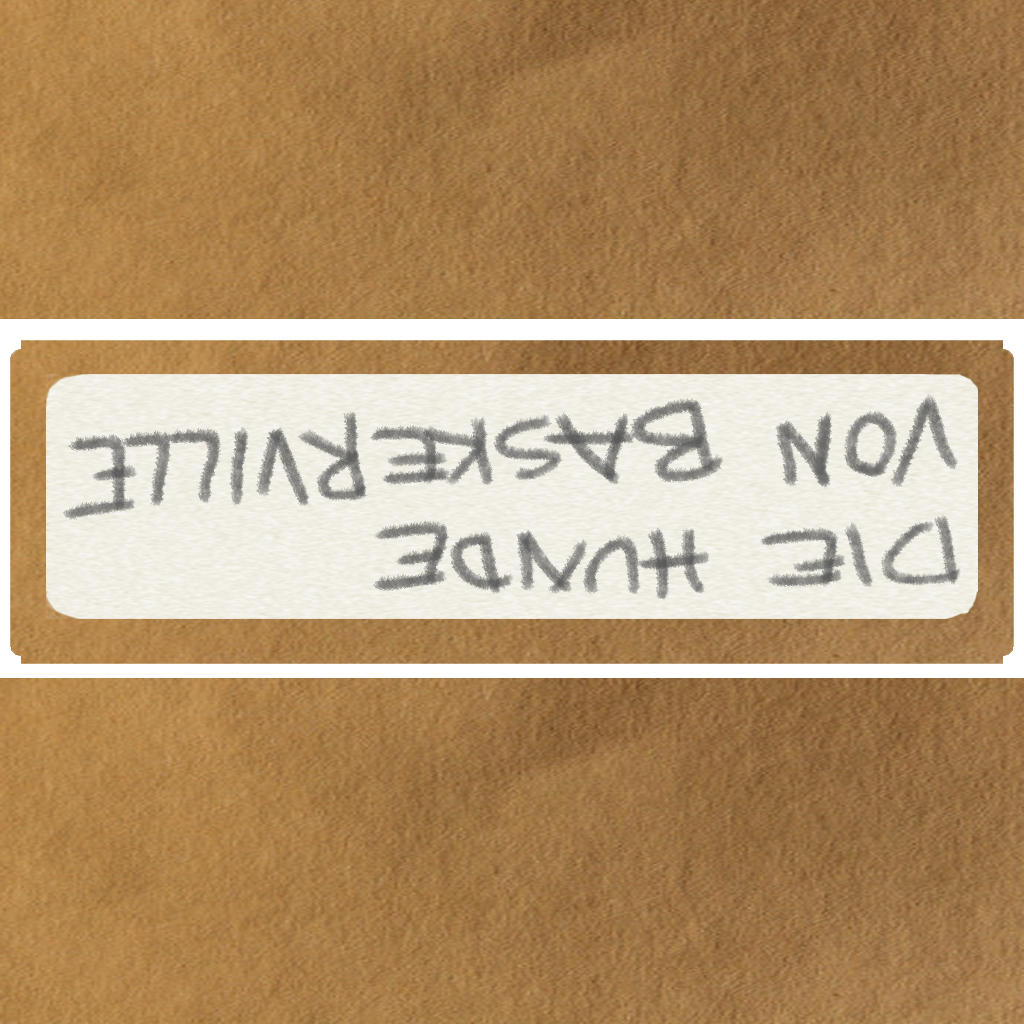 DIE HUNDE
VON BASKERVILLE